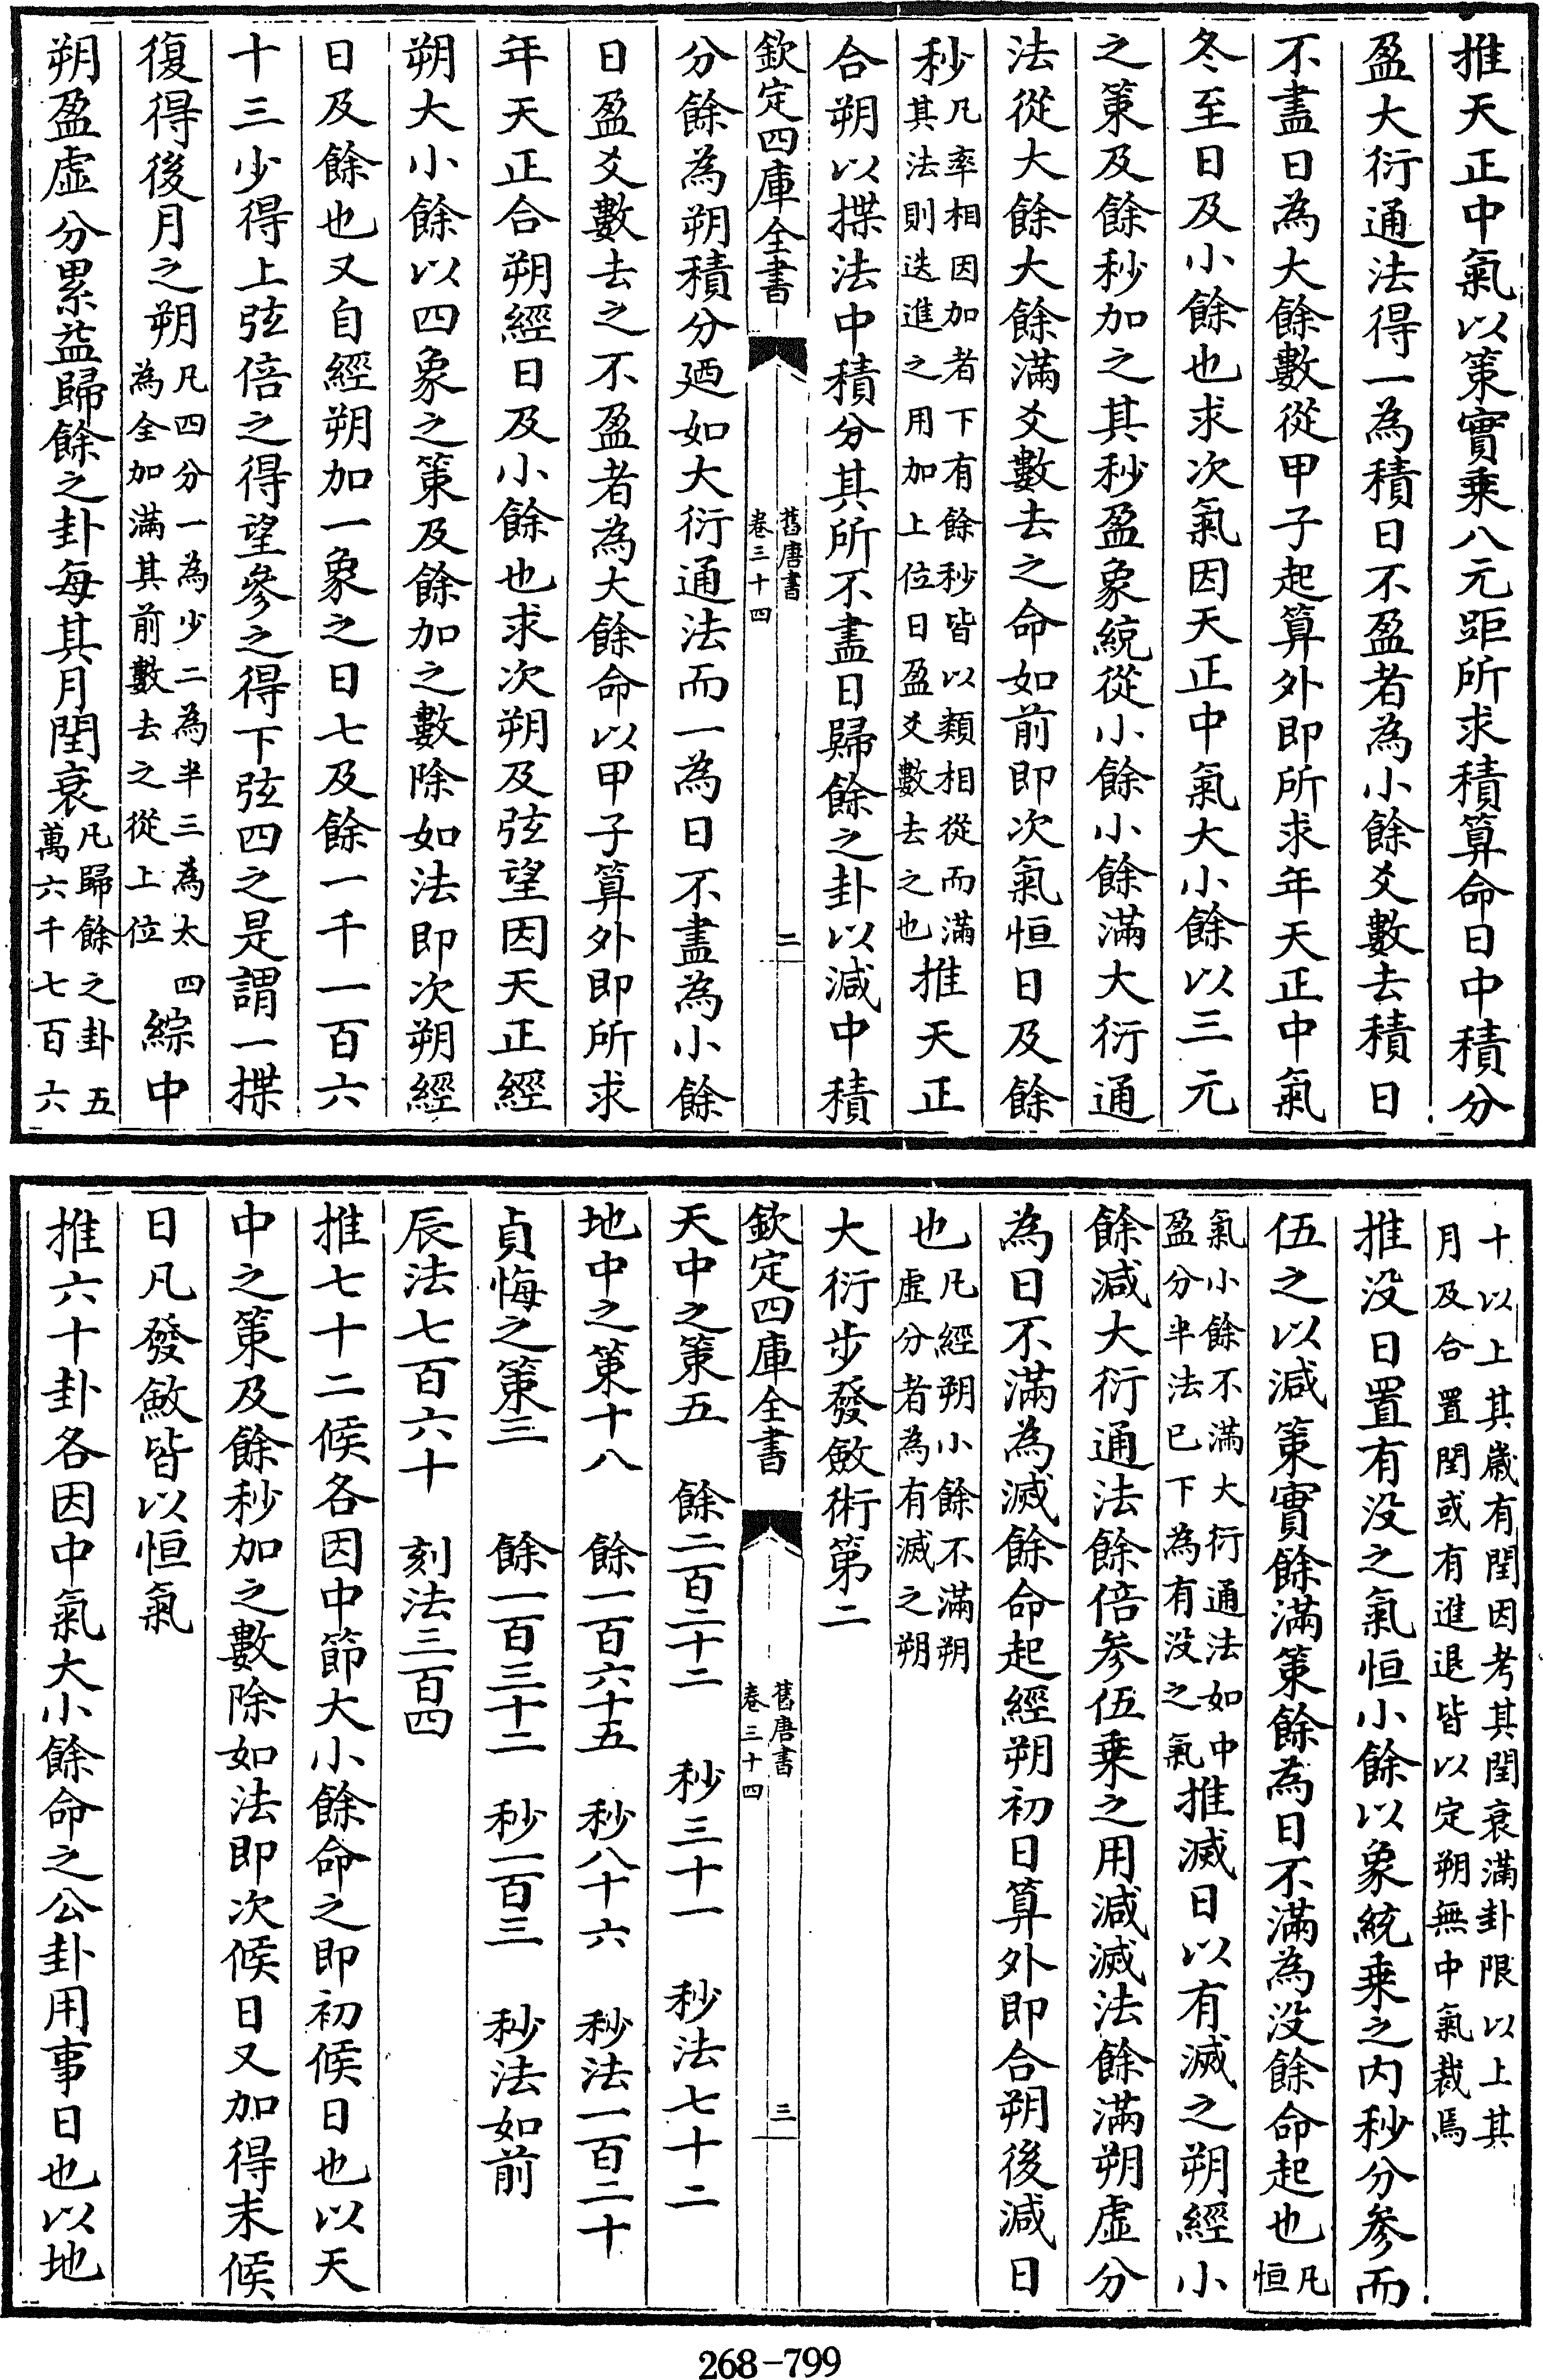 推天正中氣以策實乘八元距所求積算命曰中積分
盈大衍通法得一為積日不盈者為小餘爻數去積日
不盡日為大餘數從甲子起算外即所求年天正中氣
冬至日及小餘也求次氣因天正中氣大小餘以三元
之策及餘秒加之其秒盈象統從小餘小餘滿大衍通
法從大餘大餘滿爻數去之命如前即次氣恒日及餘
秒凡率相因加者下有餘秒皆以類相從而滿
其法則迭進之用加上位日盈爻數去之也推天正
合朔以揲法中積分其所不盡曰歸餘之卦以減中積
欽定四庫全書
舊唐書
卷三十四
二
分餘為朔積分廼如大衍通法而一為日不盡為小餘
日盈爻數去之不盈者為大餘命以甲子算外即所求
年天正合朔經日及小餘也求次朔及弦望因天正經
朔大小餘以四象之策及餘加之數除如法即次朔經
日及餘也又自經朔加一象之日七及餘一千一百六
十三少得上弦倍之得望參之得下弦四之是謂一揲
復得後月之朔凡四分一為少二為半三為太四
為全加滿其前數去之從上位綜中
朔盈虛分累益歸餘之卦每其月閏衰凡歸餘之卦五
萬六千七百六
十以上其歲有閏因考其閏衰滿卦限以上其
月及合置閏或有進退皆以定朔無中氣裁焉
推没日置有没之氣恒小餘以象統乘之内秒分參而
伍之以減策實餘滿策餘為日不滿為没餘命起也凡
恒
氣小餘不滿大衍通法如中
盈分半法已下為有没之氣推滅日以有滅之朔經小
餘減大衍通法餘倍參伍乘之用減滅法餘滿朔虛分
為日不滿為滅餘命起經朔初日算外即合朔後減日
也凡經朔小餘不滿朔
虛分者為有滅之朔
大衍步發斂術第二
欽定四庫全書
舊唐書
卷三十四
三
天中之策五　餘二百二十二　秒三十一　秒法七十二
地中之策十八　餘一百六十五　秒八十六　秒法一百二十
貞悔之策三　餘一百三十二　秒一百三　秒法如前
辰法七百六十　刻法三百四
推七十二候各因中節大小餘命之即初候日也以天
中之策及餘秒加之數除如法即次候日又加得末候
日凡發斂皆以恒氣
推六十卦各因中氣大小餘命之公卦用事日也以地
268-799